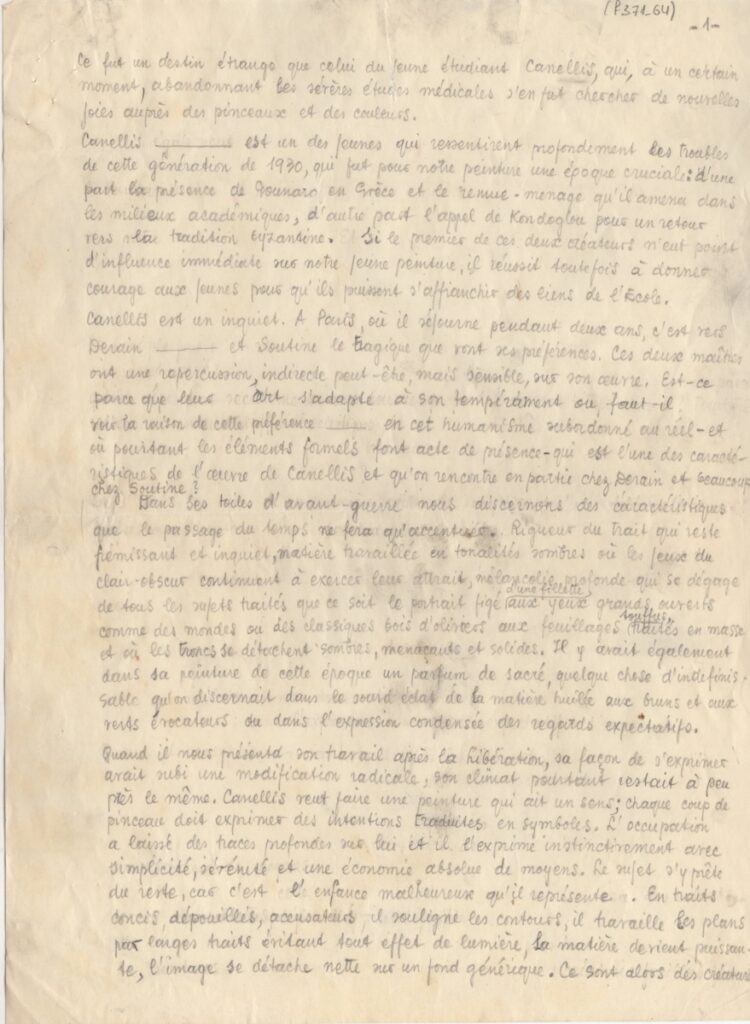 (P371_64)
-1-
Ce fut un destin étrange que celui du jeune étudiant Canellis, qui, à un certain
moment, abandonnant les sévères études médicales s'en fut chercher de nouvelles
joies auprès des pinceaux et des couleurs.
Canellis est un des jeunes qui ressentirent profondément les troubles
de cette génération de 1930, qui fut pour notre peinture une époque cruciale: d'une
part la présence de Gounaro en Grèce et le remue-ménage qu'il amena dans
les milieux académiques, d'autre part l'appel de Kondoglou pour un retour
vers la tradition byzantine. Si le premier de ces deux créateurs n'eut point
d'influence immédiate sur notre jeune peinture, il réussit toutefois à donner
courage aux jeunes pour qu'ils puissent s'affranchir des liens de l'École.
Canellis est un inquiet. A Paris, où il séjourne pendant deux ans, c'est vers
Derain et Soutine le tragique que vont ses préférences. Ces deux maîtres
ont une repercussion, indirecte peut-être, mais sensible, sur son œuvre. Est-ce
parce que leur art s'adapte à son tempérament ou faut-il
voir la raison de cette préférence en cet humanisme subordonné au réel-et
où pourtant les éléments formels font acte de présence-qui est l'une des caracté-
ristiques de l'œuvre de Canellis et qu'on rencontre en partie chez Derain et beaucoup
chez Soutine?
Dans ses toiles d'avant-guerre nous discernons des caractéristiques
que le passage du temps ne fera qu'accentuer. Rigueur du trait qui reste
frémissant et inquiet, matière travaillée en tonalités sombres où les jeux du
clair-obscur continuent à exercer leur attrait, mélancolie profonde qui se dégage
de tous les sujets traités que ce soit le portrait figé d'une fillette aux yeux grands ouverts
comme des mondes ou des classiques bois d'oliviers aux feuillages touffus traités en masse
et où les troncs se détachent sombres, menaçants et solides. Il y avait également
dans sa peinture de cette époque un parfum de sacré, quelque chose d'indéfinis-
sable qu'on discernait dans le sourd éclat de la matière huilée aux bruns et aux
verts évocateurs ou dans l'expression condensée des regards expectatifs.
Quand il nous présenta son travail après la Libération, sa façon de s'exprimer
avait subi une modification radicale, son climat pourtant restait à peu
près le même. Canellis veut faire une peinture qui ait un sens; chaque coup de
pinceau doit exprimer des intentions traduites en symboles. L'occupation
a laissé des traces profondes sur lui et il l'exprime instinctivement avec
simplicité, sérénité et une économie absolue de moyens. Le sujet s'y prête
du reste, car c'est l'enfance malheureux qu'il représente. En traits
concis, dépouillés, accusateurs il souligne les contours, il travaille les plans
par larges traits évitant tout effet de lumière, la matière devient puissan-
te, l'image se détache nette sur un fond générique. Ce sont alors des créature